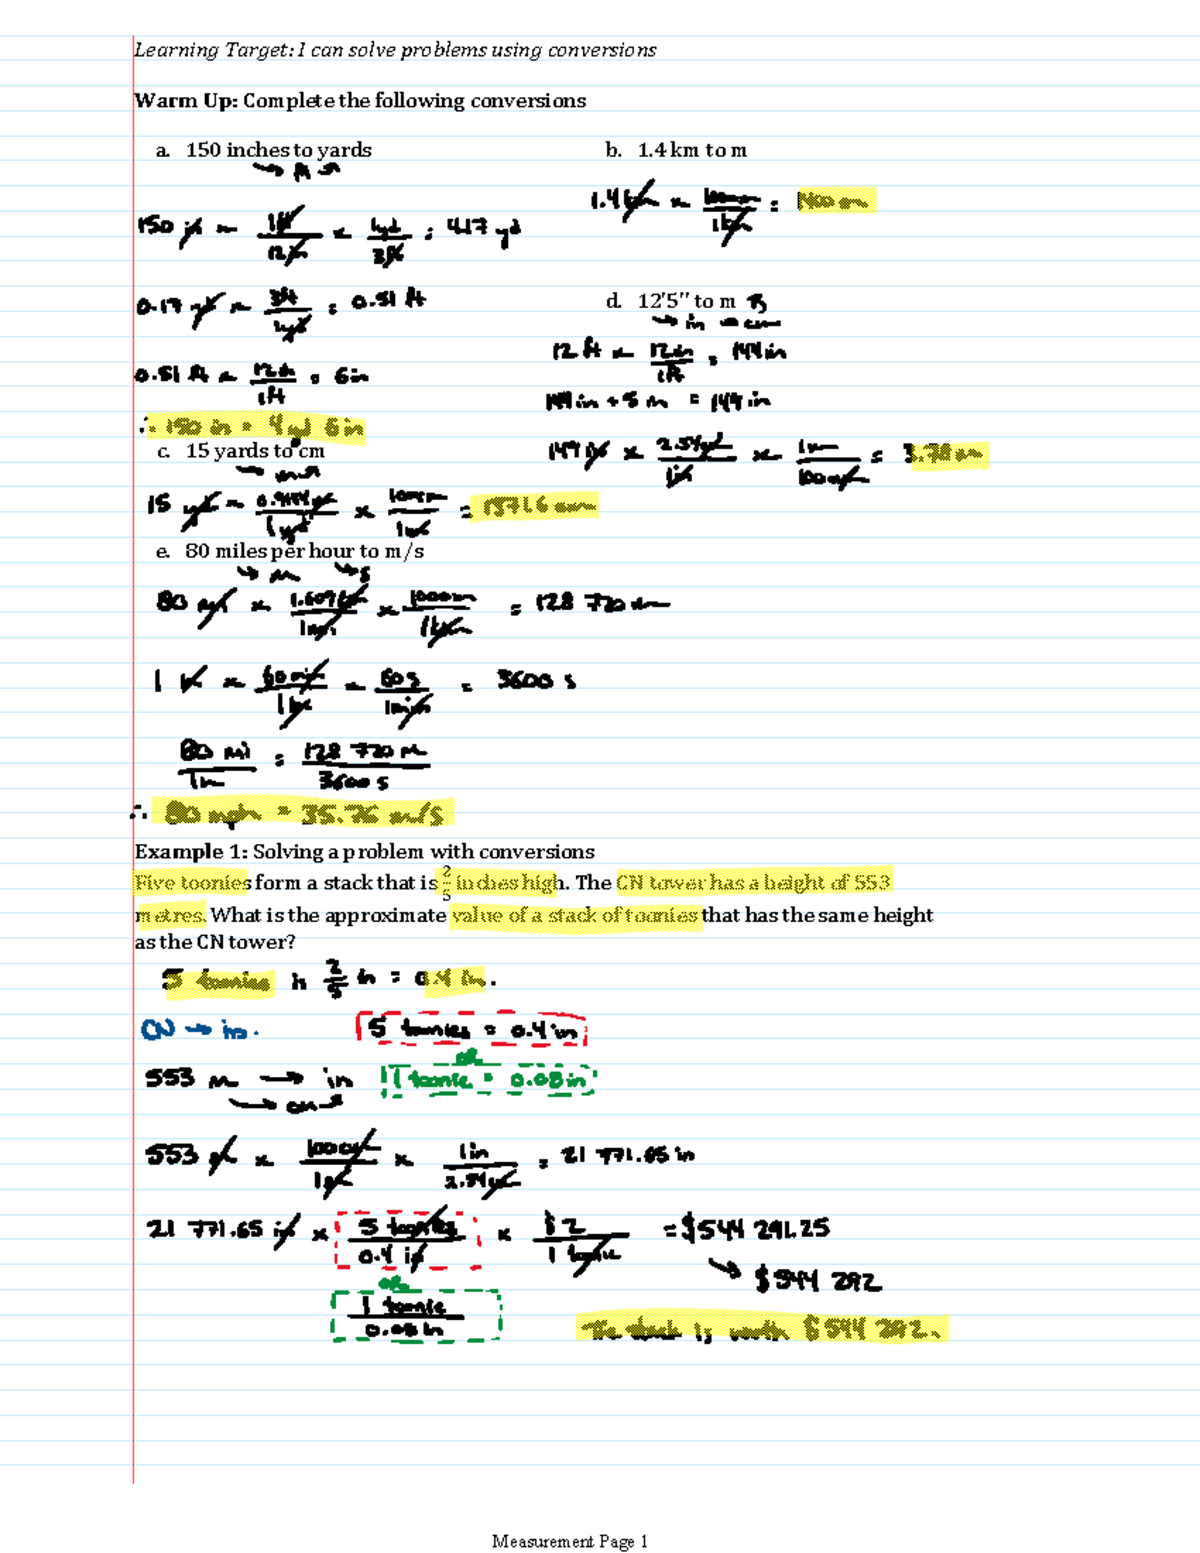 Learning Target: I can solve problems using conversions
Warm Up: Complete the following conversions
a. 150 inches to yards
→ ft →
150 in × 1ft/12in × 1yd/3ft = 4.17 yd
0.17 yd × 3ft/1yd = 0.51 ft
0.51 ft × 12in/1ft = 6in
∴ 150 in = 4 yd 6in
b. 1.4 km to m
1.4 km × 1000m/1km = 1400 m
c. 15 yards to cm
→ m →
15 yd × 0.9144m/1yd × 100cm/1m = 1371.6 cm
d. 12'5" to m
→ in → cm
12 ft × 12in/1ft = 144in
144in + 5 in = 149 in
149 in × 2.54cm/1in × 1m/100cm = 3.78 m
e. 80 miles per hour to m/s
→ m → s
80 mi × 1.609km/1mi × 1000m/1km = 128 720 m
1 hr × 60min/1hr × 60s/1min = 3600 s
80 mi/1hr = 128 720 m/3600 s
∴ 80 mph = 35.76 m/s
Example 1: Solving a problem with conversions
Five toonies form a stack that is 2/5 inches high. The CN tower has a height of 553
metres. What is the approximate value of a stack of toonies that has the same height
as the CN tower?
5 toonies is 2/5 in = 0.4 in.
CN → in. 5 toonies = 0.4 in
or
553 m → in 1 toonie = 0.08 in
→ cm →
553 m × 100cm/1m × 1in/2.54cm = 21 771.65 in
21 771.65 in × 5 toonies/0.4 in × $2/1 toonie = $544 291.25
→ $544 292
or
1 toonie/0.08 in
The stack is worth $544 292.
Measurement Page 1